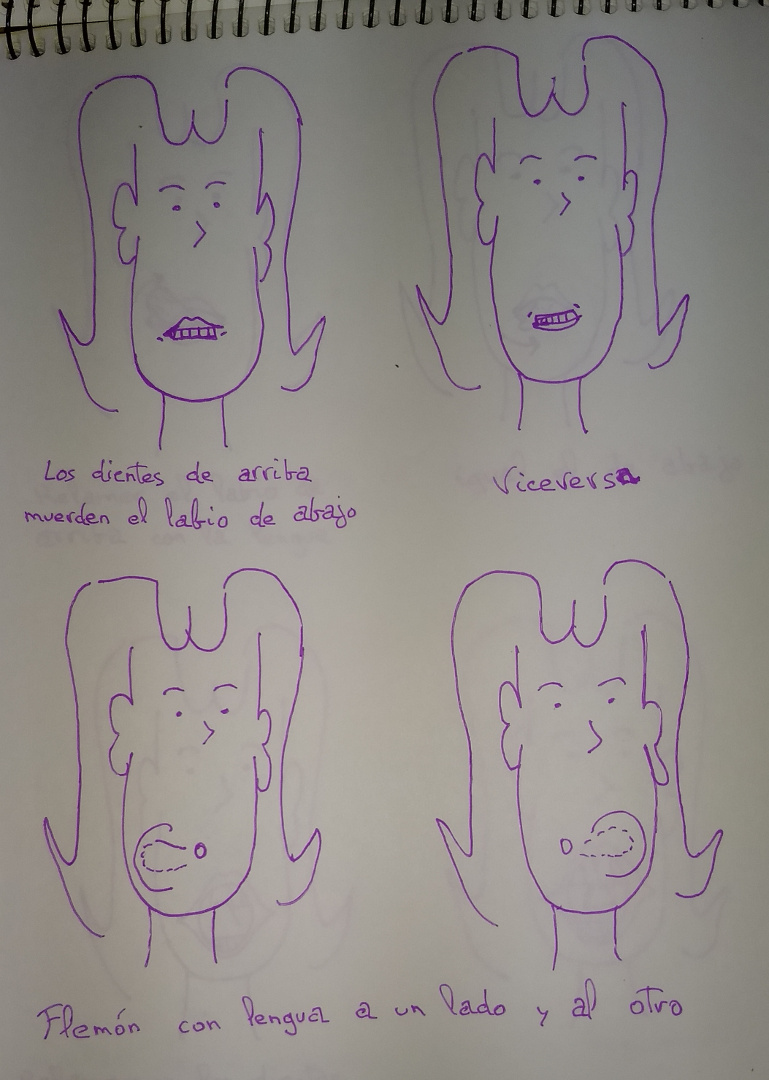 Los dientes de arriba
muerden el labio de abajo
Viceversa
Flemón con lengua a un lado y al otro